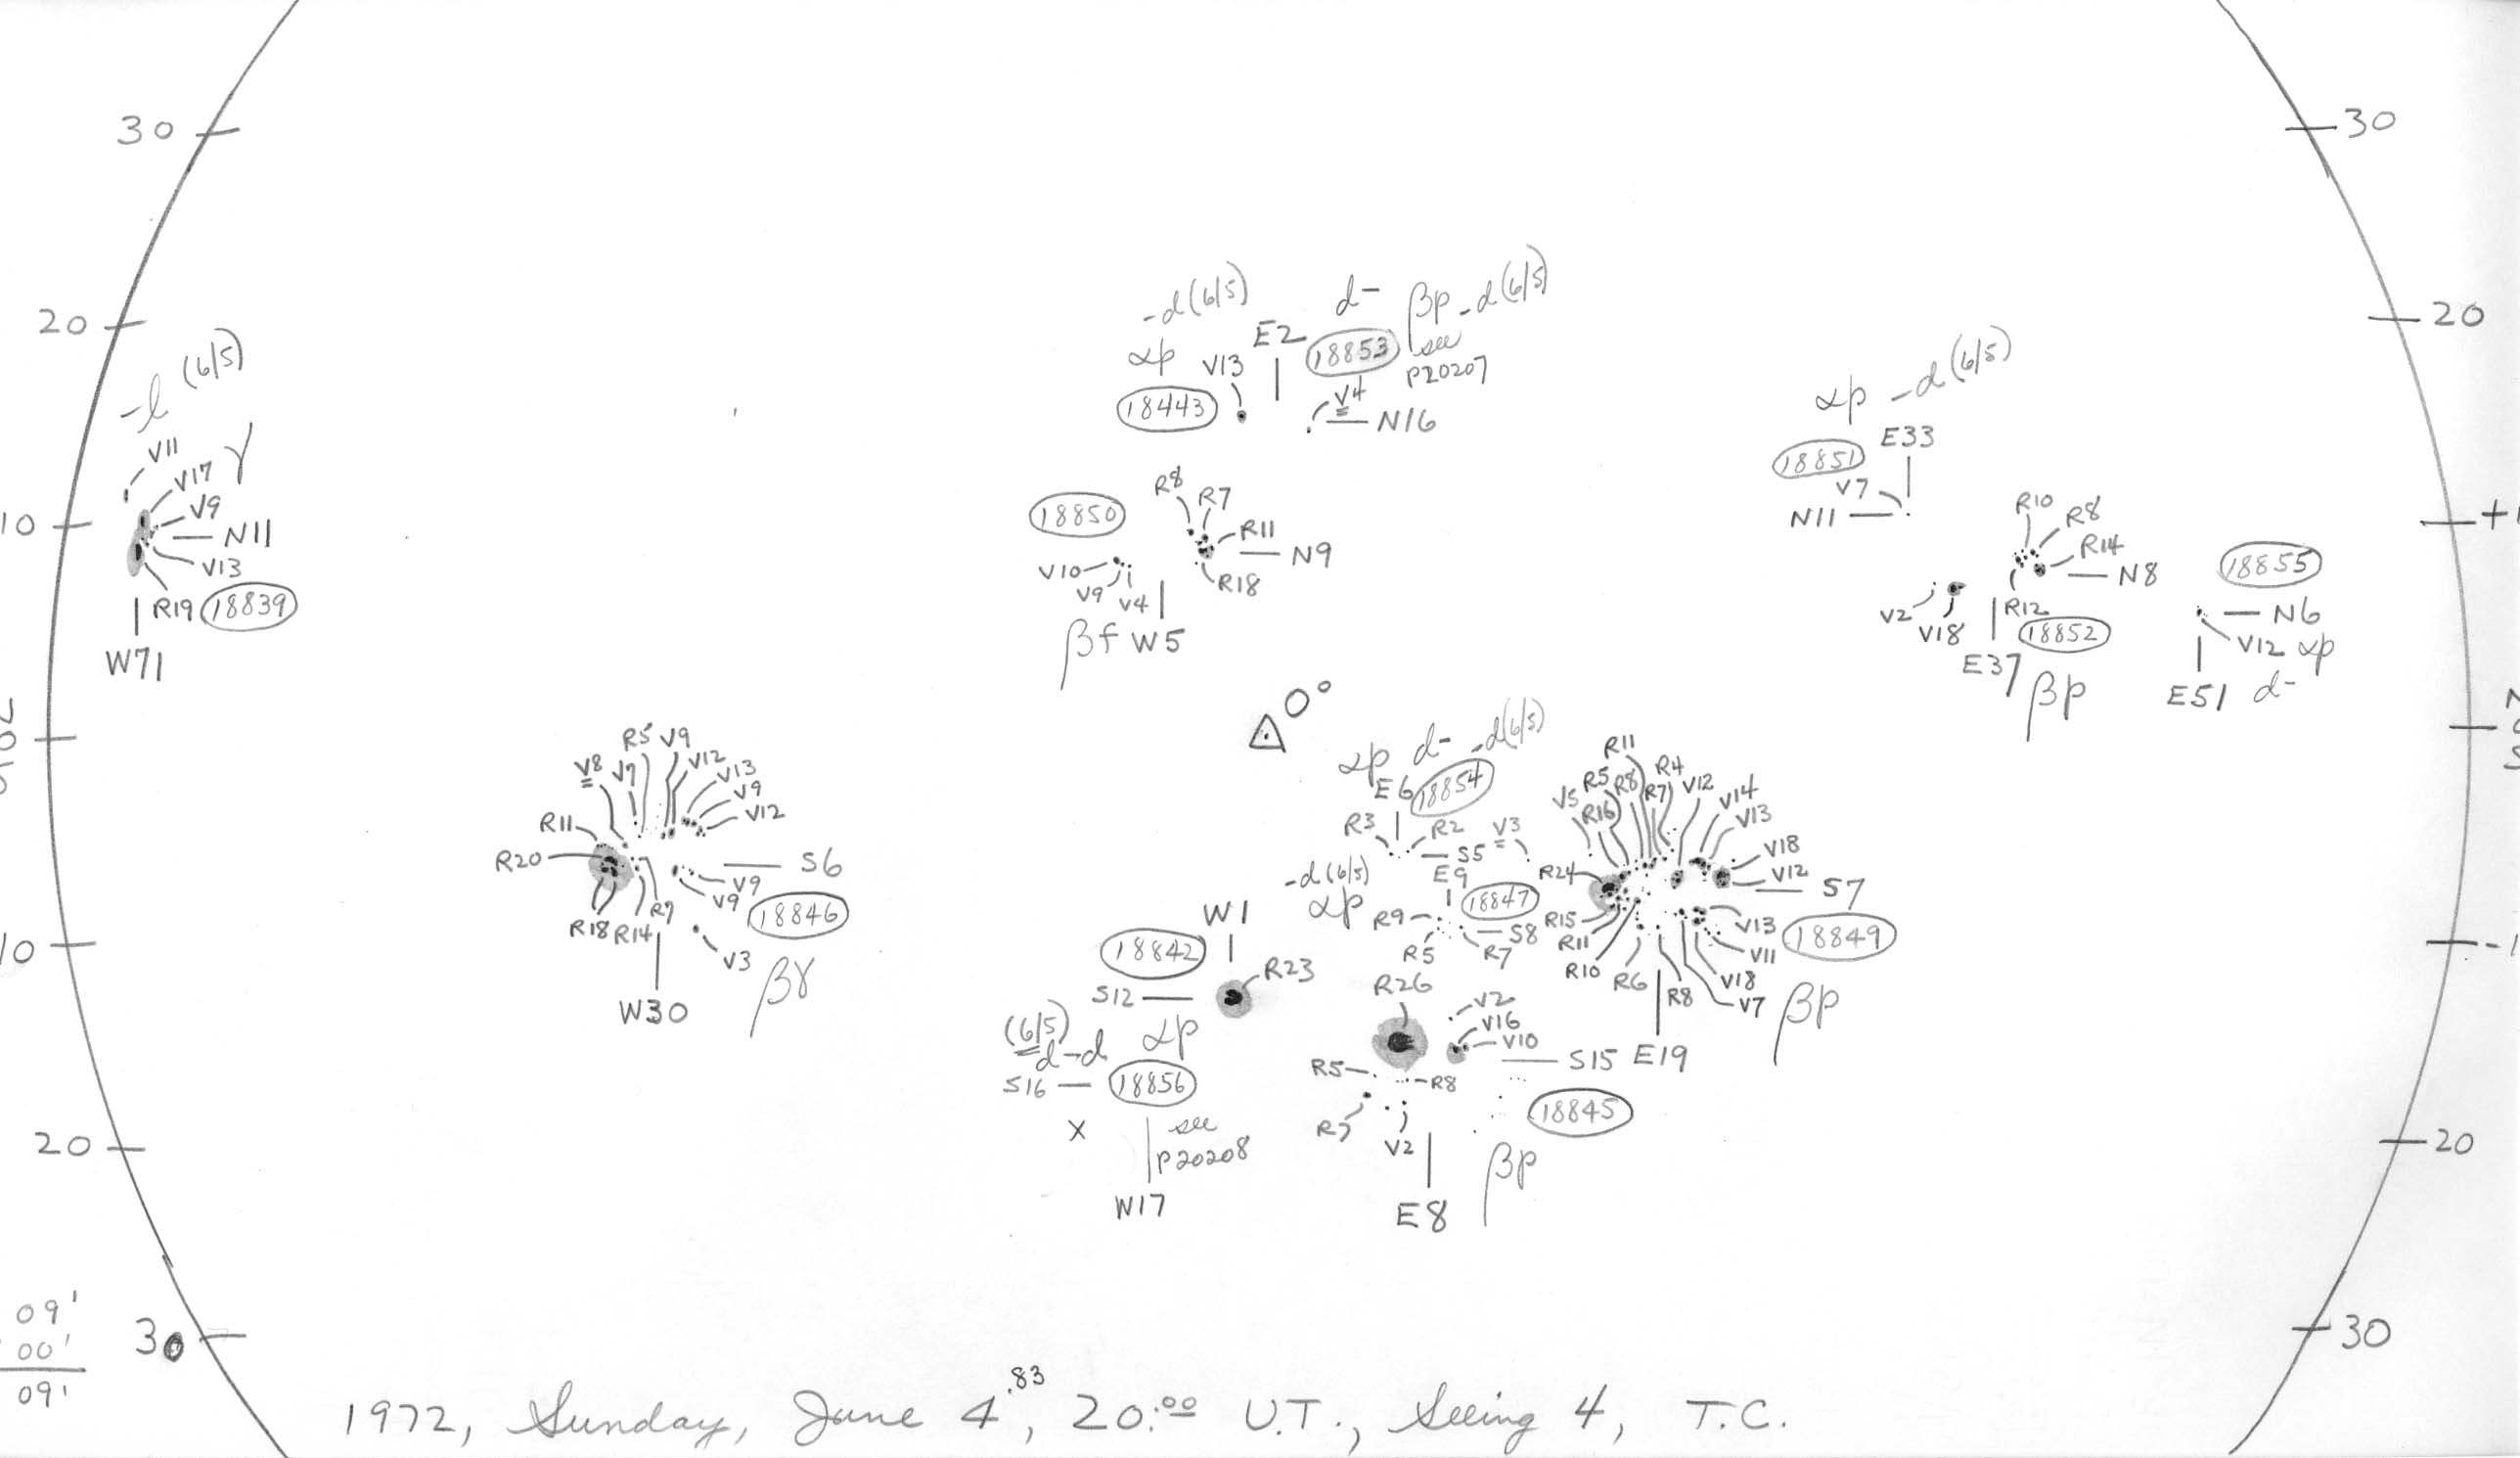 30
30
20
20
10
+1
0
0
10
-1
20
20
30
30
-l (6/5)
V11
V17
γ
V9
N11
V13
R19
18839
W71
-d(6/5)
αp
V13
18443
E2
d-
18853
βp -d(6/5)
see
P20207
V4
N16
18850
R8
R7
R11
N9
R18
V10
V9
V4
βf W5
αp -d(6/5)
18851
E33
V7
N11
R10
R8
R14
N8
R12
18852
V2
V18
E37
βp
18855
N6
V12 αp
E51 d-
0°
R5 V9
V8 V7 V12
V13
V9
V12
R11
R20
S6
V9
V9
18846
R18 R14 R7
V3
W30
βγ
αp d- -d(6/5)
E6
18854
R3
R2
V3
S5
-d(6/5)
αp
E9
18847
R9
S8
R5
R7
R11
R5 R8 R4
V5 R16 R7 V12
V14
V13
V18
V12
R24
S7
R15
R11
R10
R6
R8
V13
18849
V11
V18
V7
βp
E19
W1
18842
R23
S12
αp
(6/5)
d-d
S16
18856
x
see
P20208
W17
R26
V2
V16
V10
S15
R5
R8
18845
R7
V2
βp
E8
09'
00'
09'
1972, Sunday, June 4.83, 20:00 U.T., Seeing 4, T.C.